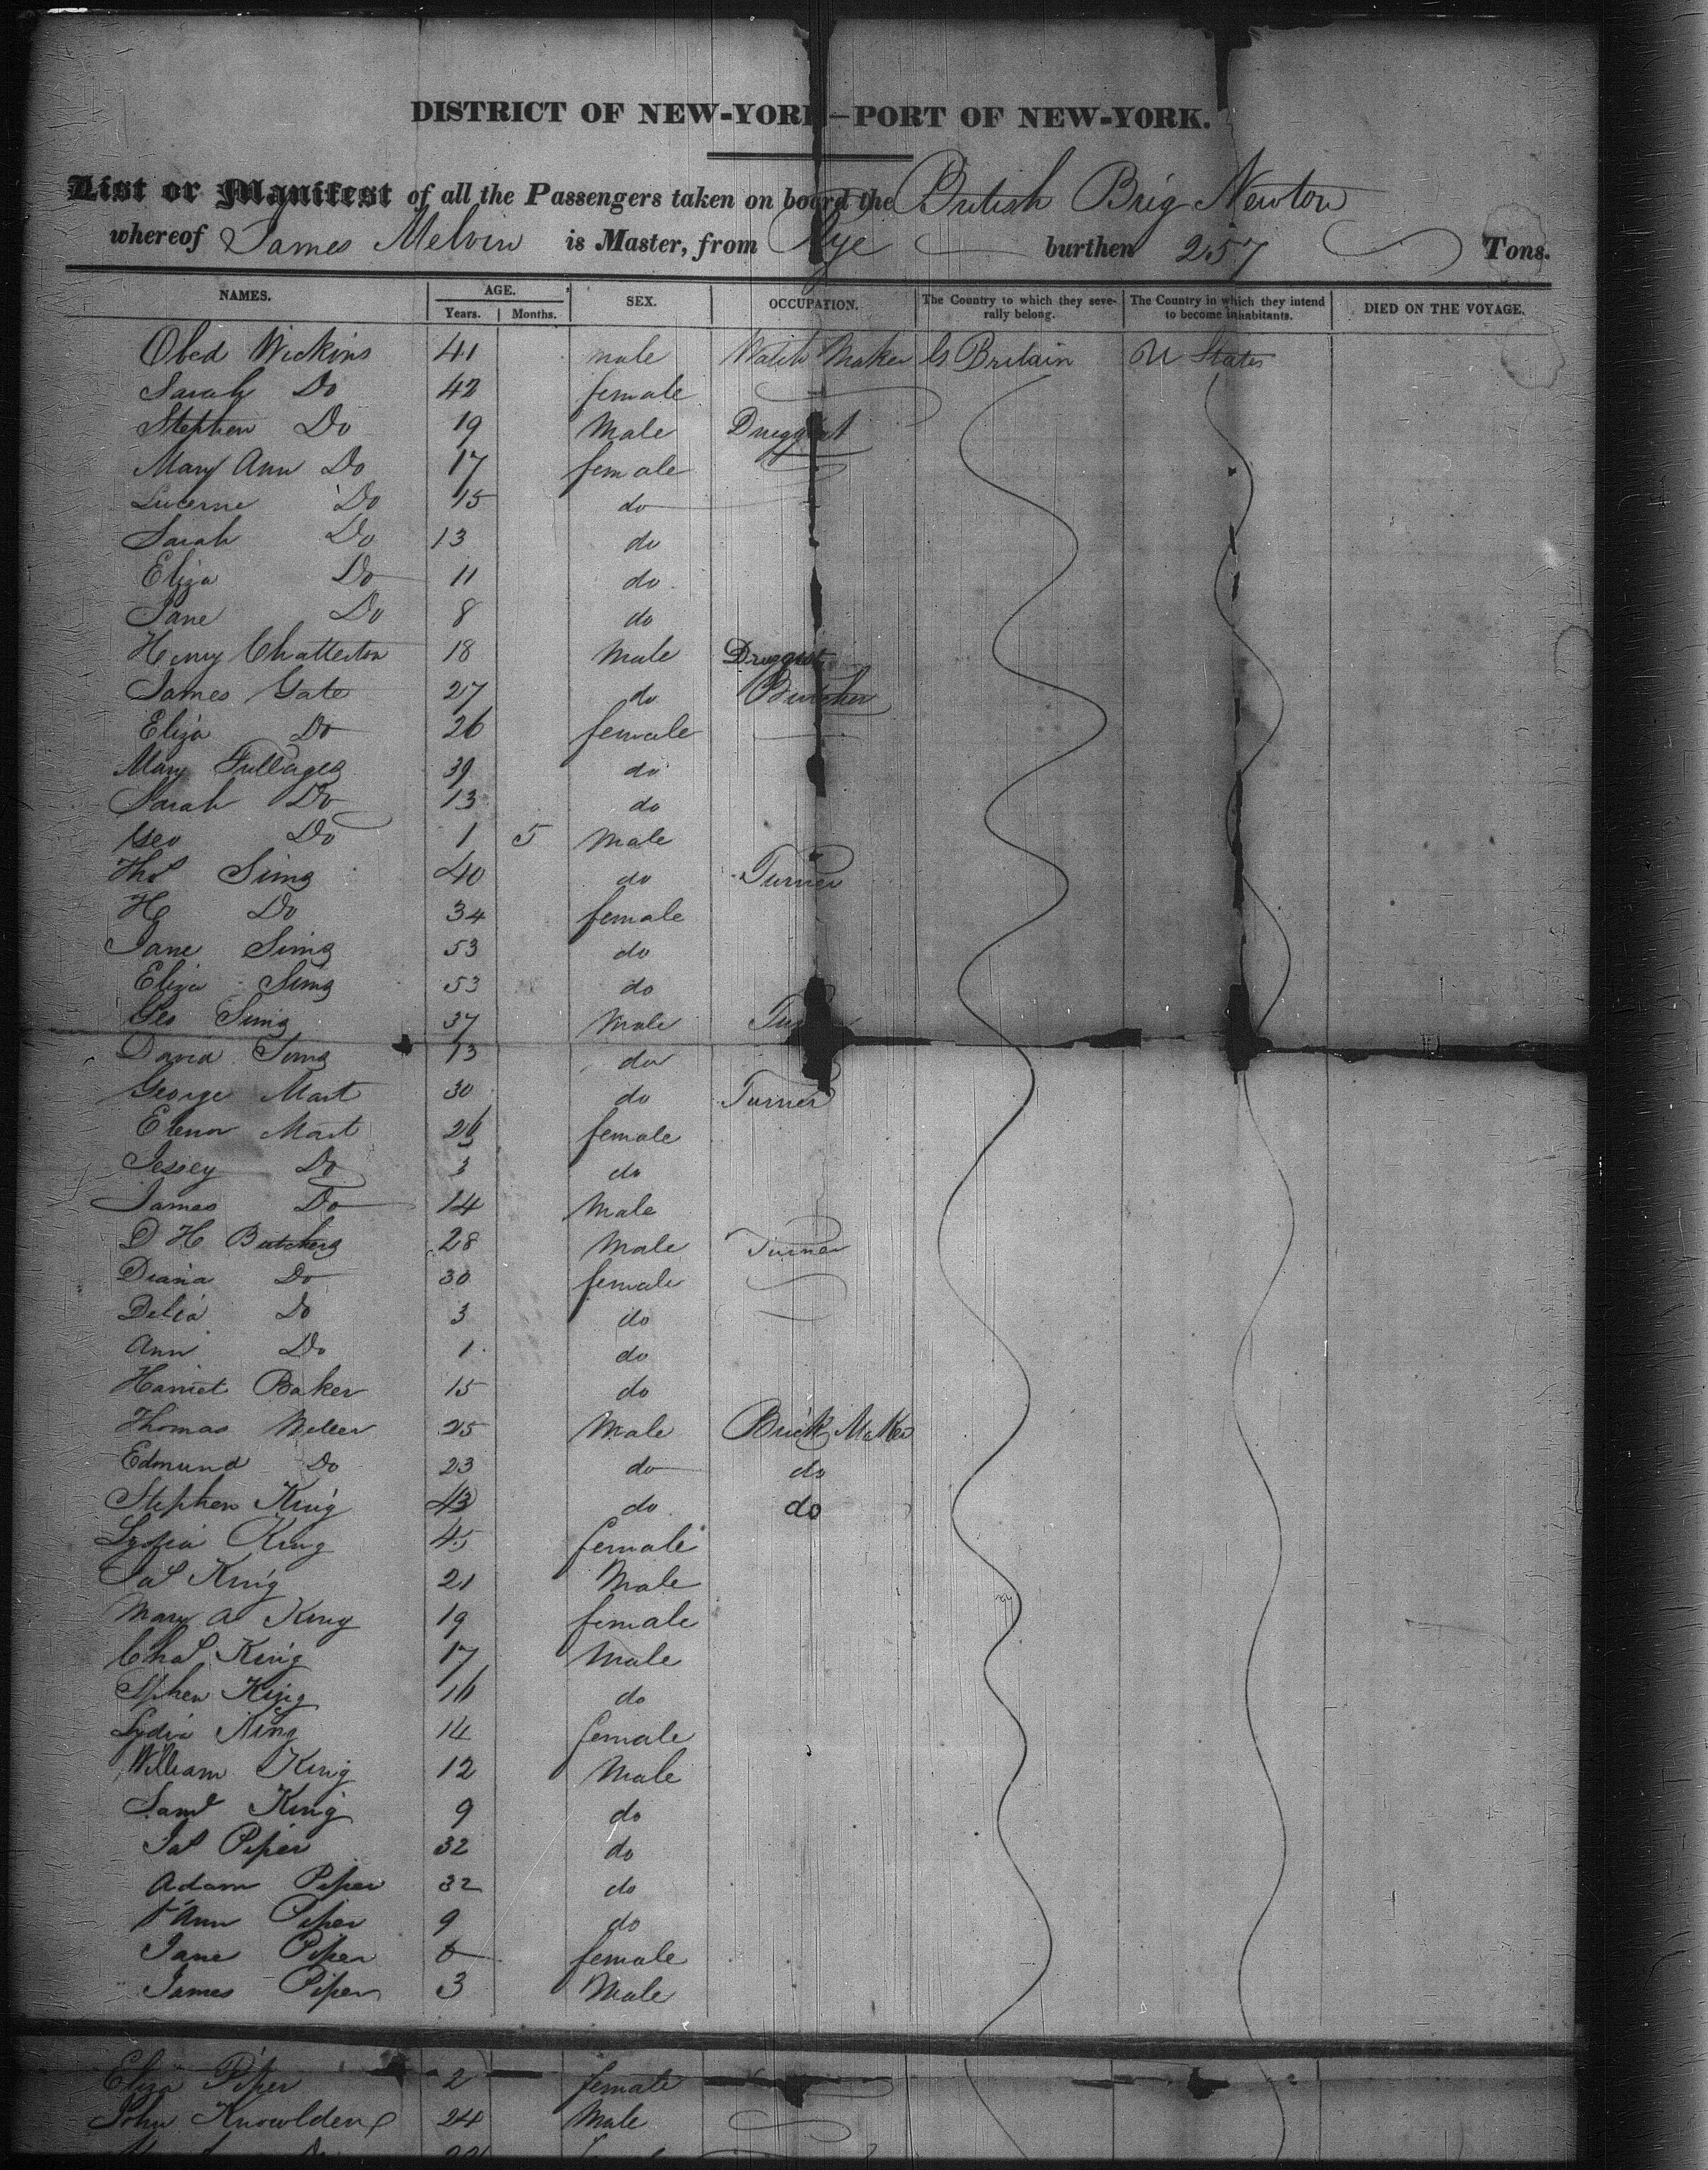 DISTRICT OF NEW-YORK—PORT OF NEW-YORK.
List or Manifest of all the Passengers taken on board the British Brig Newton
whereof James Melvin is Master, from Rye burthen 257 Tons.
NAMES. AGE. Years. Months. SEX. OCCUPATION. The Country to which they severally belong. The Country in which they intend to become inhabitants. DIED ON THE VOYAGE.
Obed Wickins 41 male Watch Maker G Britain U States
Sarah Do 42 female
Stephen Do 19 Male Druggist
Mary Ann Do 17 female
Lucerne Do 15 do
Sarah Do 13 do
Eliza Do 11 do
Jane Do 8 do
Henry Chatterton 18 Male Druggist
James Gate 27 do Butcher
Eliza Do 26 female
Mary Fullager 39 do
Sarah Do 13 do
Geo Do 1 5 Male
Thos Sims 40 do Turner
H Do 34 female
Jane Sims 53 do
Eliza Sims 53 do
Geo Sims 37 Male
David Sims 13 do
George Mart 30 do Turner
Elenor Mart 26 female
Jessey Do 3 do
James Do 14 Male
D H Butchers 28 Male Turner
Diana Do 30 female
Delia Do 3 do
Ann Do 1 do
Harriet Baker 15 do
Thomas 25 Male Brick Maker
Edmund Do 23 do do
Stephen King 43 do do
Lydia King 45 female
Jas King 21 Male
Mary A King 19 female
Chas King 17 Male
Sphen King 16 do
Lydia King 14 female
William King 12 Male
Saml King 9 do
Jas Piper 32 do
Adam Piper 32 do
Ann Piper 9 do
Jane Piper female
James Piper 3 Male
Eliza Piper 2 female
John Knowlden 24 Male